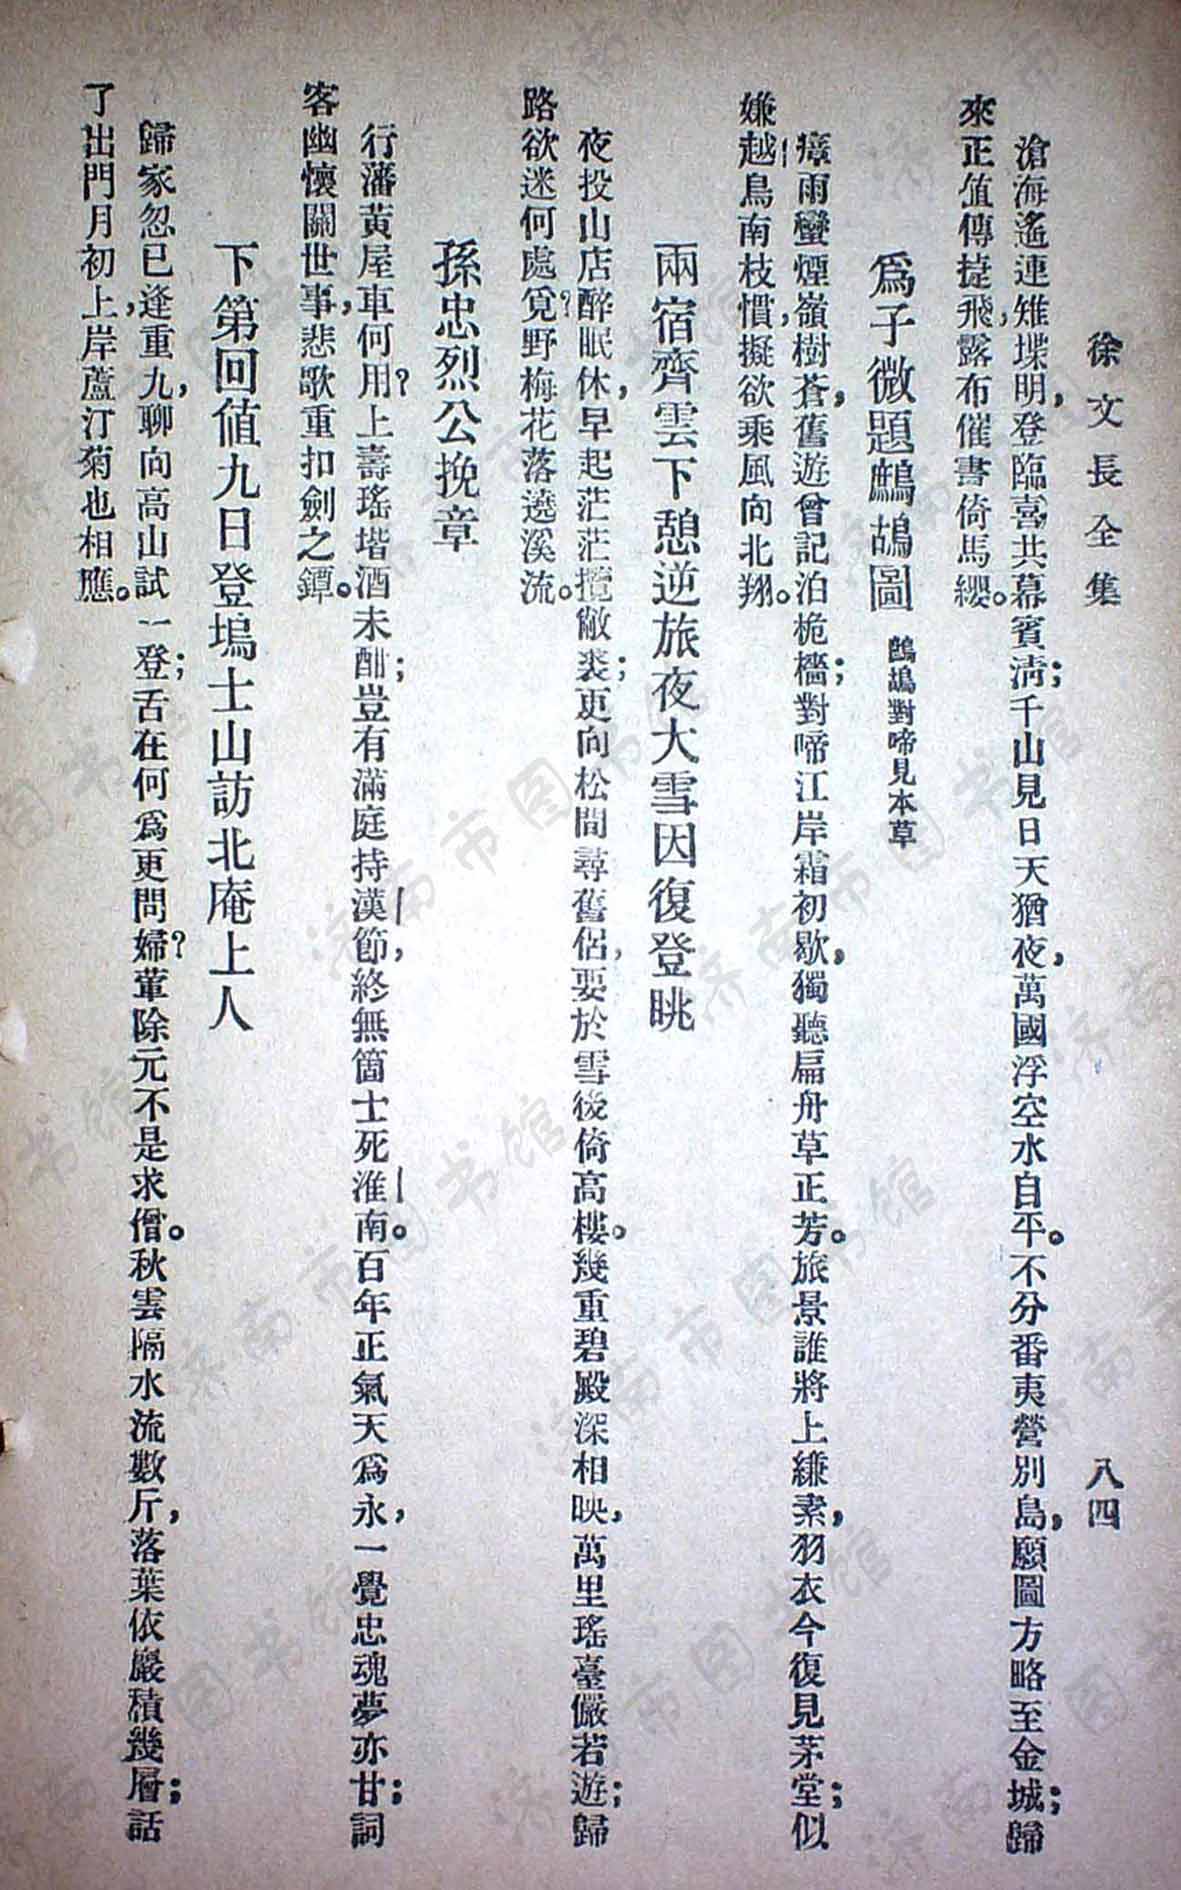 徐文長全集
八四
滄海遙連雉堞明,登臨喜共幕賓淸;千山見日天猶夜,萬國浮空水自平。不分番夷營別島,願圖方略至金城;歸
來正值傳捷飛,露布催書倚馬纓。
爲子微題鷓鴣圖 鷓鴣對啼見本草
瘴雨蠻煙嶺樹蒼,舊遊曾記泊桅檣;對啼江岸霜初歇,獨聽扁舟草正芳。旅景誰將上縑素,羽衣今復見茅堂;似
嫌越鳥南枝慣,擬欲乘風向北翔。
兩宿齊雲下憩逆旅夜大雪因復登眺
夜投山店醉眠休,早起茫茫攬敝裘;更向松間尋舊侶,要於雪後倚高樓。幾重碧殿深相映,萬里瑤臺儼若遊;歸
路欲迷何處覓?野梅花落遶溪流。
孫忠烈公挽章
行藩黃屋車何用?上壽瑤堦酒未酣;豈有滿庭持漢節,終無箇士死淮南。百年正氣天爲永,一覺忠魂夢亦甘;詞
客幽懷關世事,悲歌重扣劍之鐔。
下第回値九日登塢士山訪北庵上人
歸家忽已逢重九,聊向高山試一登;舌在何爲更問婦?葷除元不是求僧。秋雲隔水流數斤,落葉依巖積幾層;話
了出門月初上,岸蘆汀菊也相應。